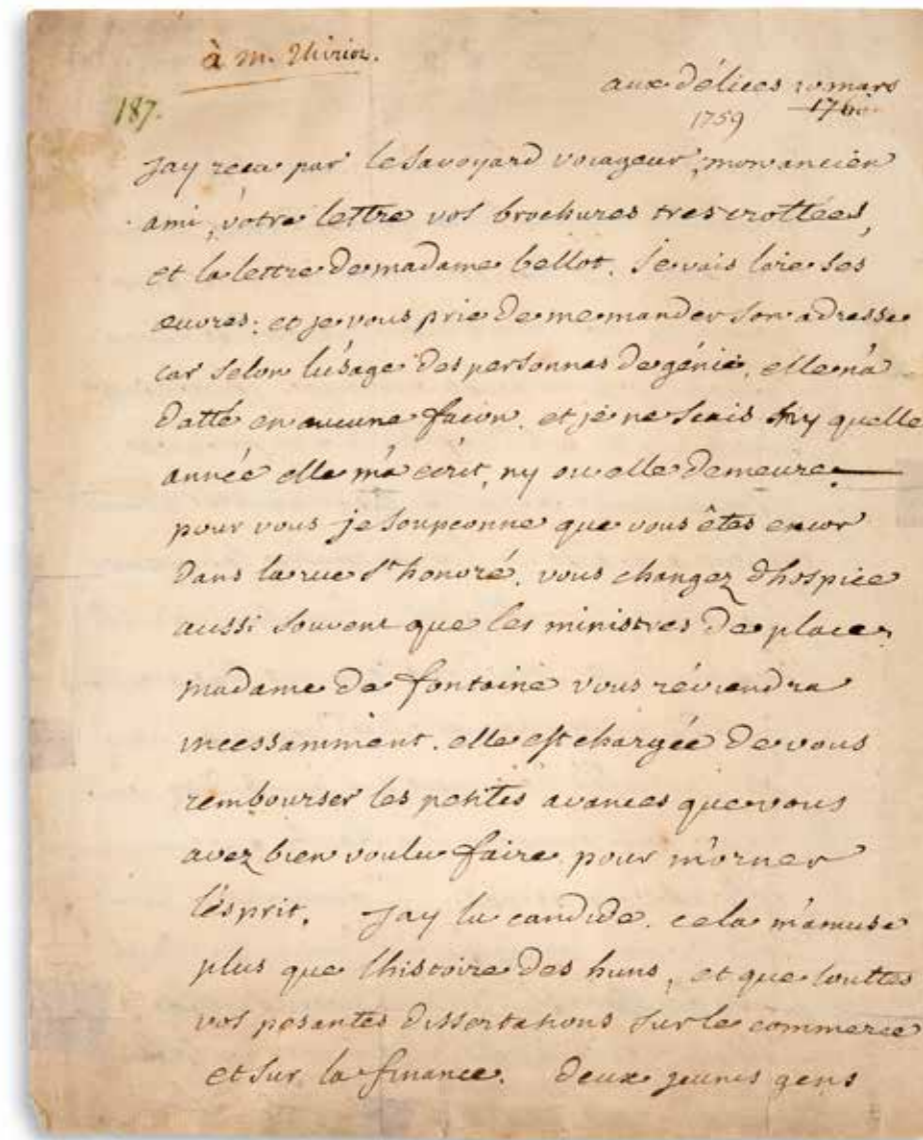 à M. Thiriot.
aux délices 10 mars
187.
1759 1760
Jay receu par le Savoyard voiageur, mon ancien
ami, votre lettre vos brochures tres crottées,
et la lettre de madame bellot. Je vais lire ses
œuvres; et je vous prie de me mander son adresse
car selon l'usage des personnes de génie, elle n'a
datté en aucune facon. et je ne scais ny quelle
année elle m'a écrit, ny ou elle demeure.
pour vous je soupconne que vous êtes encor
dans la rue St honoré. vous changez d'hospice
aussi souvent que les ministres de place.
madame de fontaine vous reviendra
incessamment. elle est chargée de vous
rembourser les petites avances que vous
avez bien voulu faire pour m'orner
l'esprit. Jay lu candide. cela m'amuse
plus que l'histoire des huns, et que touttes
vos pesantes dissertations sur le commerce
et sur la finance. deux jeunes gens